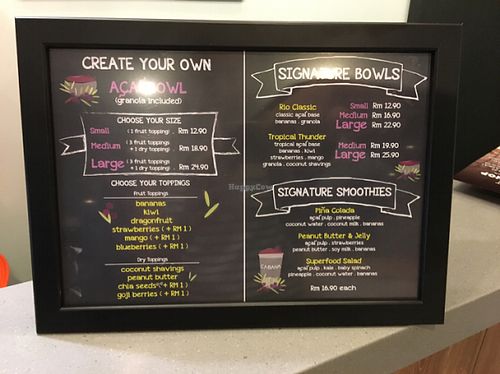 CREATE YOUR OWN
AÇAÍ BOWL
(granola included)
CHOOSE YOUR SIZE
Small (1 fruit topping) RM 12.90
Medium (3 fruit toppings + 1 dry topping) RM 18.90
Large (3 fruit toppings + 1 dry topping) RM 24.90
CHOOSE YOUR TOPPINGS
Fruit Toppings
bananas
kiwi
dragonfruit
strawberries ( + RM 1 )
mango ( + RM 1 )
blueberries ( + RM 1 )
Dry Toppings
coconut shavings
peanut butter
chia seeds ( + RM 1 )
goji berries ( + RM 1 )
SIGNATURE BOWLS
Rio Classic
classic açaí base
bananas . granola
Small RM 12.90
Medium RM 16.90
Large RM 22.90
Tropical Thunder
tropical açaí base
bananas . kiwi
strawberries . mango
granola . coconut shavings
Medium RM 19.90
Large RM 25.90
SIGNATURE SMOOTHIES
Piña Colada
açaí pulp . pineapple
coconut water . coconut milk . bananas
Peanut Butter & Jelly
açaí pulp . strawberries
peanut butter . soy milk . bananas
Superfood Salad
açaí pulp . kale . baby spinach
pineapple . coconut water . bananas
RM 16.90 each
HappyCow